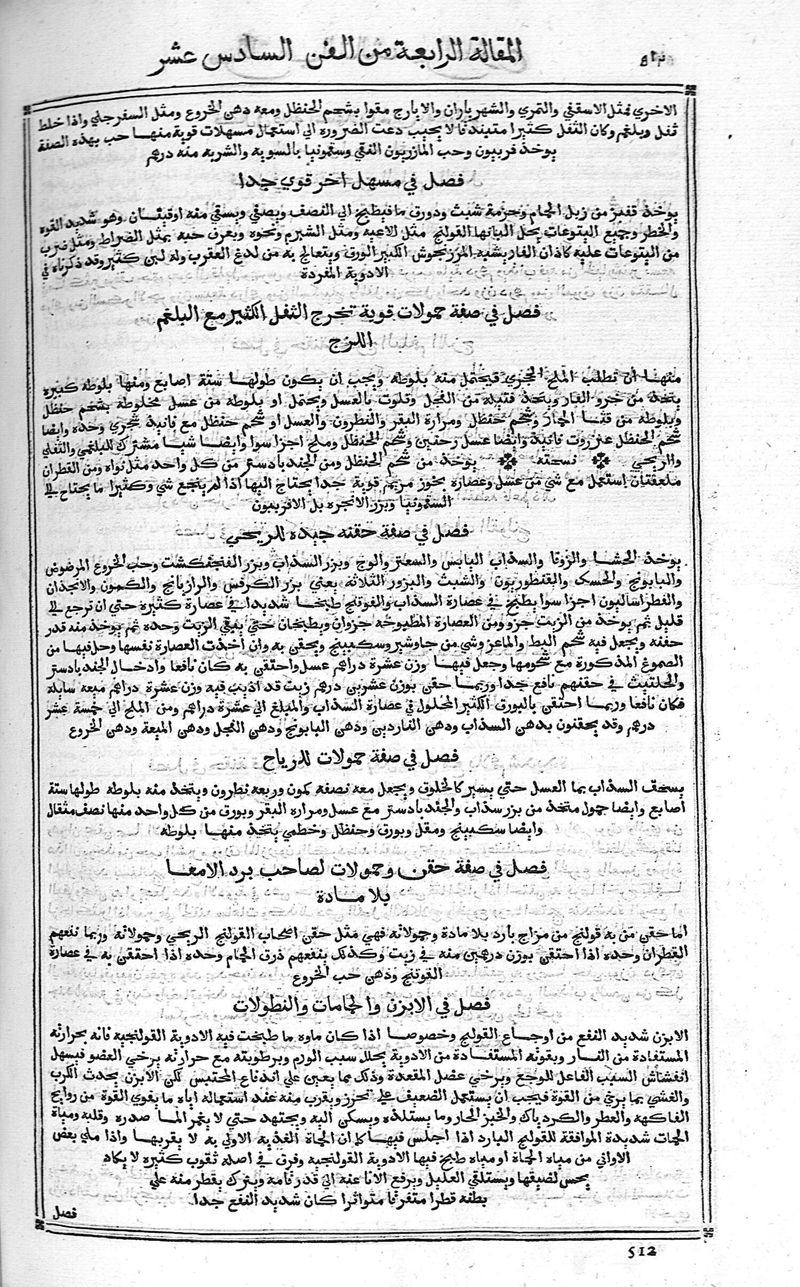 المقالة الرابعة من الفن السادس عشر
الاخري فمثل الاسقفي والتمري والشهرياران والايارج مقوا بشحم الحنظل ومعه دهن الخروع ومثل السفرجلي واذا خلط
ثفل وبلغم وكان الثفل كثيرا لا يجيب دعت الضروره الي استعمال مسهلات قوية منها حب بهذه الصفة
يوخذ فربيون وحب المازريون النقي وسقمونيا بالسوية والشربة منه درهم
فصل في مسهل اخر قوي جدا
يوخذ قفيز من زبل الحمام وحزمة شبث ودورق ما فيطبخ الي النصف ويصفي ويسقي منه اوقيتان وهو شديد القوه
والخطر وجميع اليتوعات يحل البانها القولنج مثل الاعيه ومثل الشبرم ونحوه ويعرف حبه بمثل الضراط ومثل ضرب
من اليتوعات عليه كاذان الفار يشبه المرزنجوش الكبير الورق ويتعالج به من لدغ العقرب وله لبن كثير وقد ذكرناه في
الادوية المفردة
فصل في صفة حمولات قوية تخرج الثفل الكثير مع البلغم
اللزج
منها ان تطلب الملح فيتخذ منه بلوطة ويجب ان يكون طولها ستة اصابع ومنها بلوطة كبيره
يتخذ من خرو الفار ويتخذ فتيله من الفجل وتلوت بالعسل ويحتمل او بلوطة من عسل مخلوطة بشحم حنظل
وبلوطة من قثا الحمار وشحم حنظل ومرارة البقر والنطرون والعسل او شحم حنظل مع فانيذ شجري وحده وايضا
شحم الحنظل عنزروت فانيذ وايضا عسل رحفين وشحم الحنظل وملح اجزا سوا وايضا شيا مشترك للبلغمي والثفلي
والريحي نسخته يوخذ من شحم الحنظل ومن الجندبادستر من كل واحد مثل نواه ومن القطران
ملعقتان استعمل مع شي من عسل وعصاره بخور مريم قوية جدا يحتاج اليها اذا لم ينجع شي وكثيرا ما يحتاج الي
السقمونيا وبزر الانجره بل الافربيون
فصل في صفة حقنه جيده للريحي
يوخذ الحشا والزوفا والسذاب اليابس والسعتر والوج وبزر السذاب وبزر الفنجنكشت وحب الخروع المرضوض
والبابونج والحسك والقنطوريون والشبث والبزور الثلاثه يعني بزر الكرفس والرازيانج والكمون والانجذان
والفطراساليون اجزا سوا يطبخ في عصارة السذاب والفوتنج طبخا شديدا في عصارة كثيره حتي ان ترجع الي
قليل ثم يوخذ من الزيت جزو ومن العصارة المطبوخه جزوان ويطبخان حتي يبقي الزيت وحده ثم يوخذ منه قدر
حقنه ويجعل فيه شحم البط والماعز وشي من جاوشير وسكبينج ويحقن به وان اخذت العصارة نفسها وحل فيها من
الصموغ المذكورة مع شحومها وجعل فيها وزن عشرة دراهم عسل واحتقن به كان نافعا وادخال الجندبادستر
والحلتيث في حقنهم نافع جدا وربما حقن بوزن عشرين درهم زيت قد اذيب فيه وزن عشرة دراهم ميعه سايله
فكان نافعا وربما احتقن بالبورق الكثير المحلول في عصارة السذاب والمبلغ الي عشرة دراهم ومن الملح الي خمسة عشر
درهم وقد يحقنون بدهن السذاب ودهن الناردين ودهن البابونج ودهن الفجل ودهن الميعة ودهن الخروع
فصل في صفة حمولات للرياح
يسحق السذاب بما العسل حتي يسير كالخلوق ويجعل معه نصفه كمون وربعه نطرون ويتخذ منه بلوطه طولها ستة
اصابع وايضا حمول متخذ من بزر سذاب والجندبادستر مع عسل ومراره البقر وبورق من كل واحد منها نصف مثقال
وايضا سكبينج ومقل وبورق وحنظل وخطمي يتخذ منها بلوطه
فصل في صفة حقن وحمولات لصاحب برد الامعا
بلا مادة
اما حقن من به قولنج من مزاج بارد بلا مادة وحمولاته فهي مثل حقن اصحاب القولنج الريحي وحمولاته وربما نفعهم
القطران وحده اذا احتقن بوزن درهمين منه في زيت وكذلك ينفعهم ذرق الحمام وحده اذا احتقن به في عصارة
الفوتنج ودهن حب الخروع
فصل في الابزن والحمامات والنطولات
الابزن شديد النفع من اوجاع القولنج وخصوصا اذا كان ماوه ما طبخت فيه الادوية القولنجيه فانه بحرارته
المستفادة من النار وبقوته المستفادة من الادوية يحلل سبب الورم وبرطوبته مع حرارته يرخي العضو فيسهل
انفشاش السبب الفاعل للوجع ويرخي عضل المقعدة وذلك مما يعين علي اندفاع المحتبس لكن الابزن يحدث الكرب
والغشي بما يرخي من القوة فيجب ان يستعمل الضعيف علي تحرز ويقرب منه عند استعماله اياه ما يقوي القوة من روايح
الفاكهه والعطر والكردباك والخبز الحار وما يستلذه ويسكن اليه ويجتهد حتي لا يغمر الما صدره وقلبه ومياة
الحمات شديدة الموافقة للقولنج البارد اذا اجلس فيها كما ان الحماة الغذبه الاولي به لا يقربها واذا ملي بعض
الاواني من مياه الحماة او مياه طبخ فيها الادوية القولنجية وفرق في اصله ثقوب كثيره لا يكاد
يحس لضيقها ويستلقي العليل ويرفع الانا عنه الي قدر قامة ويترك يقطر منه علي
بطنه قطرا متفرقا متواترا كان شديد النفع جدا
فصل
512